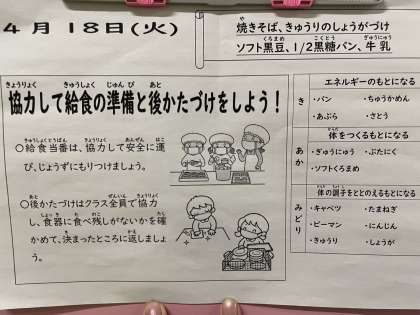 4月18日(火)
焼きそば、きゅうりのしょうがづけ
ソフト黒豆、1/2黒糖パン、牛乳
協力して給食の準備と後かたづけをしよう!
○給食当番は、協力して安全に運
び、じょうずにもりつけましょう。
○後かたづけはクラス全員で協力
し、食器に食べ残しがないかを確
かめて、決まったところに返しましょ
う。
エネルギーのもとになる
き
・パン ・ちゅうかめん
・あぶら ・さとう
体をつくるもとになる
あか
・ぎゅうにゅう ・ぶたにく
・ソフトくろまめ
体の調子をととのえるもとになる
みどり
・キャベツ ・たまねぎ
・ピーマン ・にんじん
・きゅうり ・しょうが